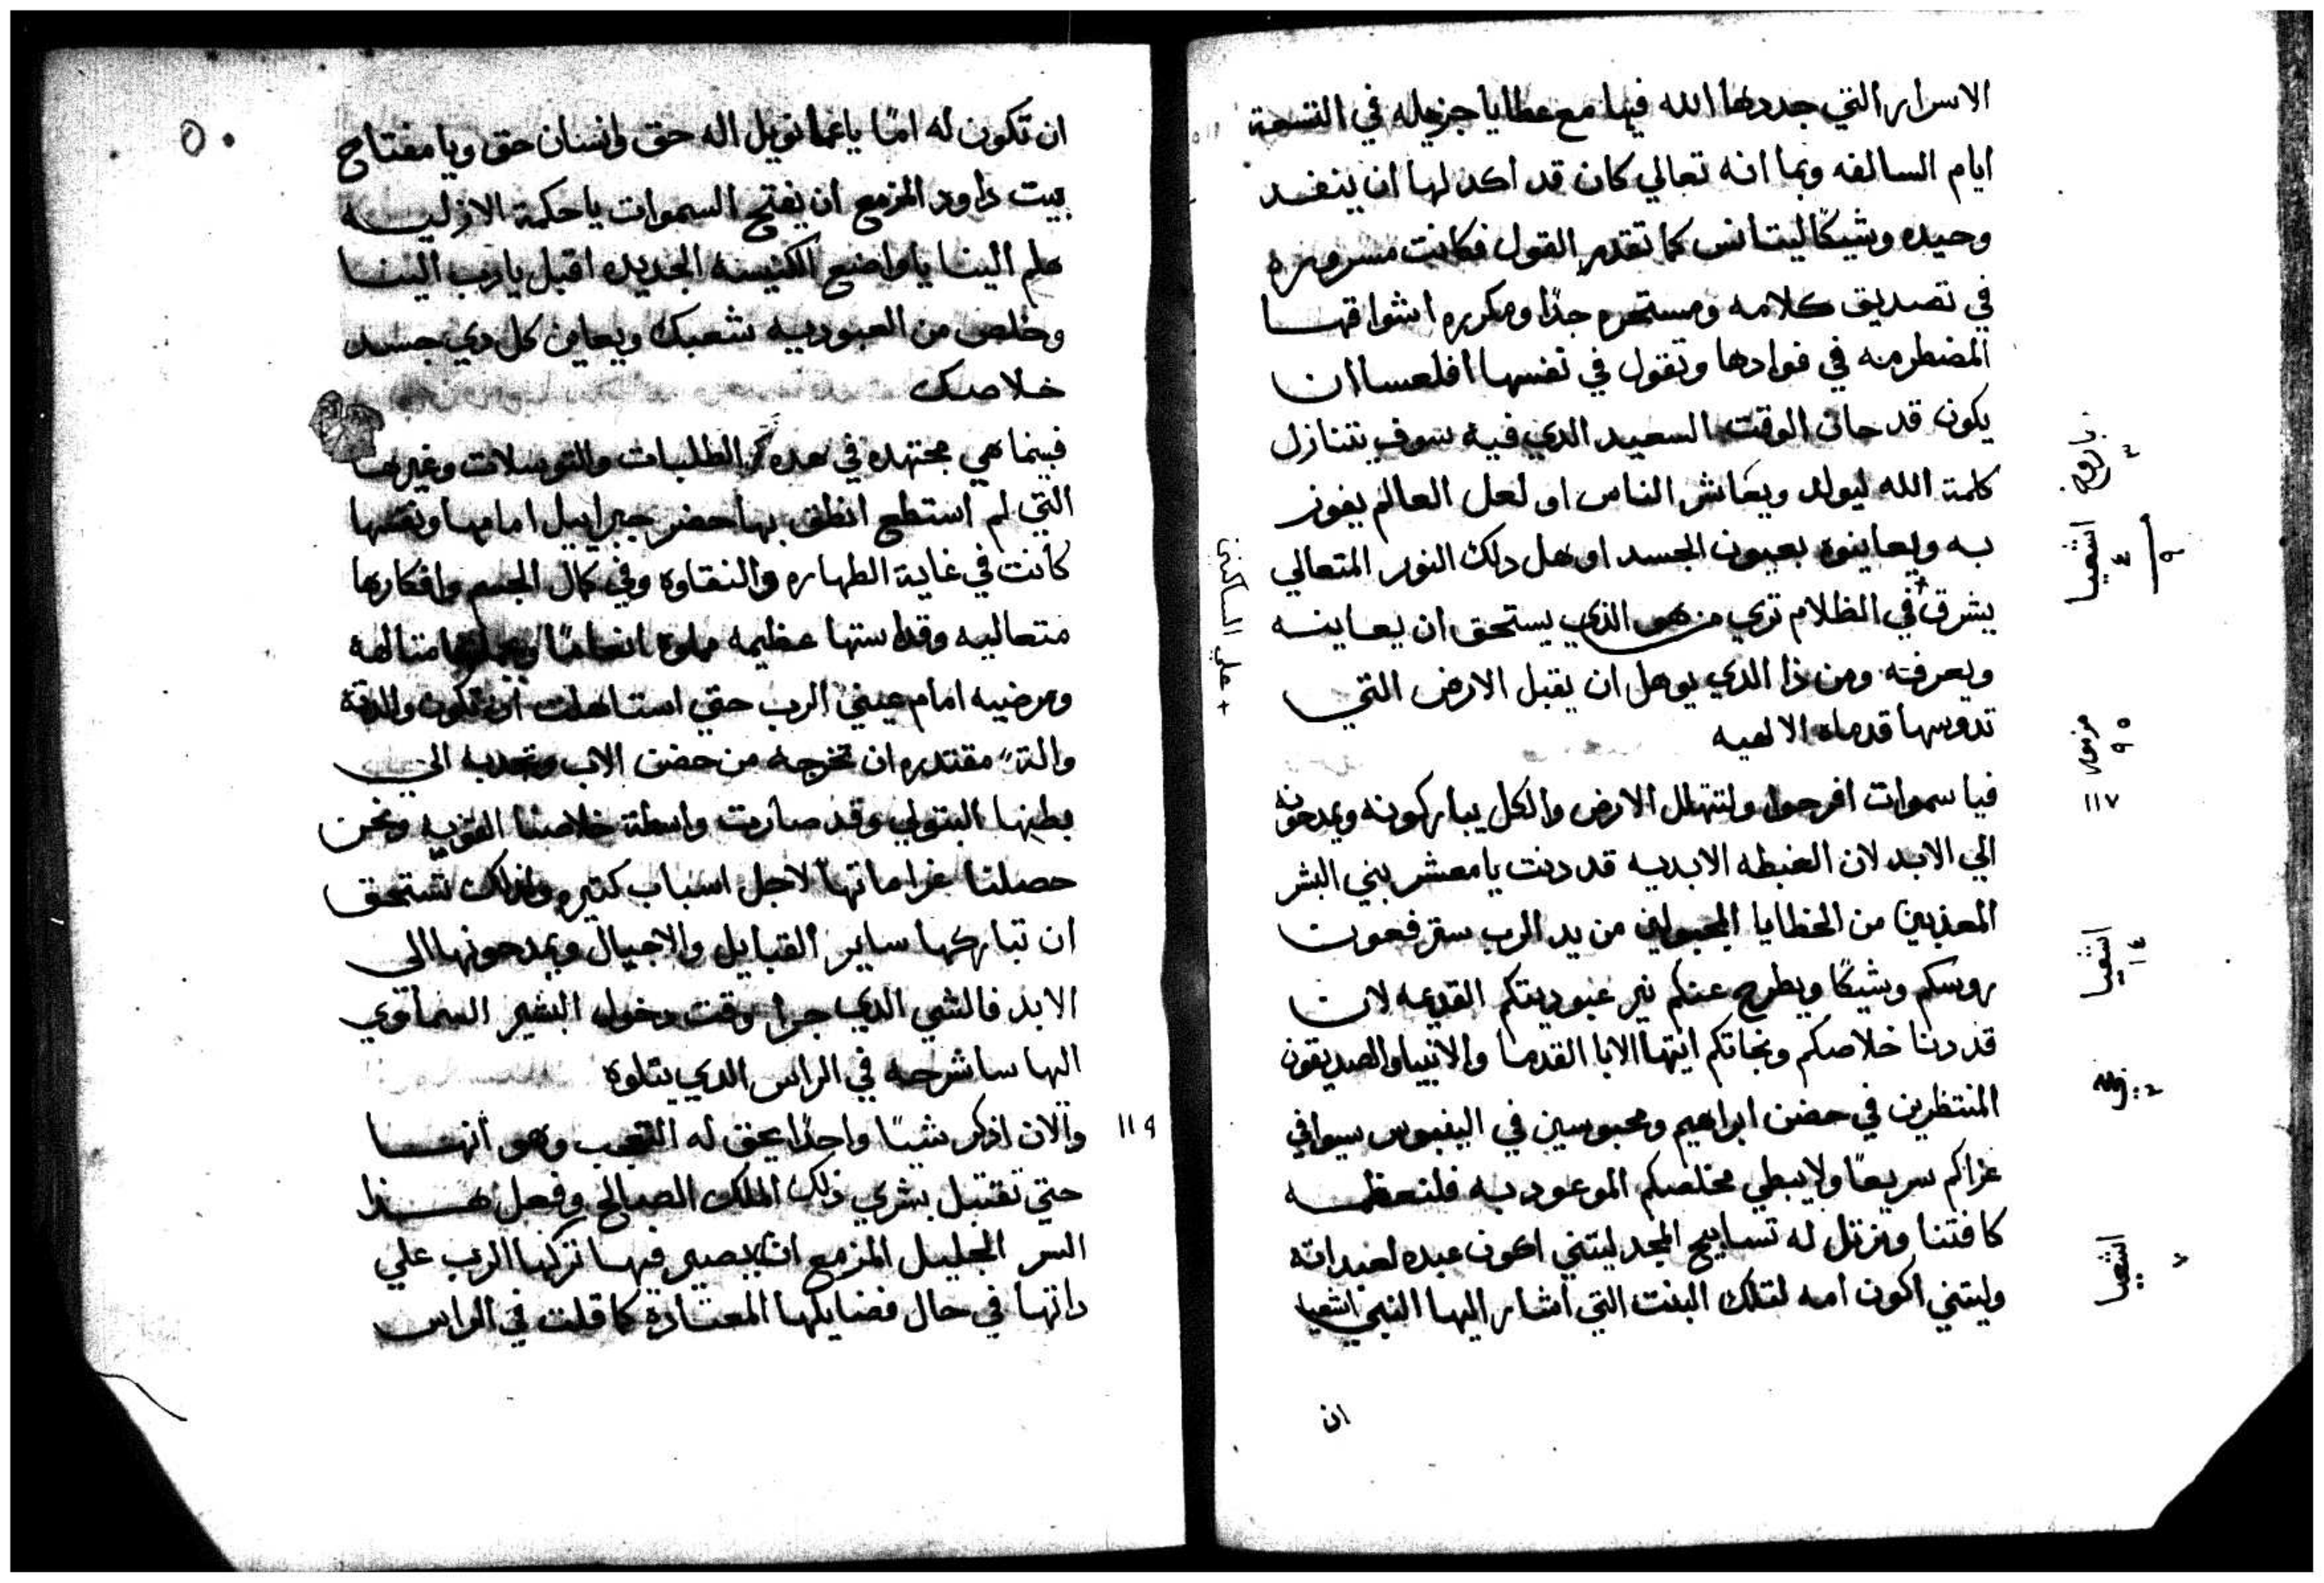 الاسرار التي جددها الله فيها مع عطايا جزيله في التسعة
ايام السالفه وبما انه تعالي كان قد اكد لها ان ينفد
وحيده وشيكًا ليتانس كما تقدم القول فكانت مسروره
في تصديق كلامه ومستحره جدًا ومكرره اشواقها
المضطرمه في فوادها وتقول في نفسها افلعسا ان
يكون قد حان الوقت السعيد الدي فيه سوف يتنازل
كلمة الله ليولد ويعاشر الناس او لعل العالم يفوز
به ويعاينوه بعيون الجسد او هل دلك النور المتعالي
يشرق + في الظلام تري من هو الذي يستحق ان يعاينه
ويعرفه ومن ذا الدي يوهل ان يقبل الارض التي
تدوسها قدماه الالهيه
فيا سموات افرحوا ولتتهلل الارض والكل يباركونه ويمدحونه
الي الابد لان الغبطه الابديه قد دنت يا معشر بني البشر
المعذبين من الخطايا المجبولين من يد الرب سترفعون
روسكم وشيكًا ويطرح عنكم نير عبوديتكم القديمه لان
قد دنا خلاصكم ونجاتكم ايتها الابا القدما والانبيا والصديقون
المنتظرين في حضن ابراهيم ومحبوسين في الينبوس سيوافي
عزاكم سريعًا ولا يبطي مخلصكم الموعود به فلنعظمه
كافتنا ونرتل له تسابيح المجد ليتني اكون عبده لعبداته
وليتني اكون امه لتلك البنت التي اشار اليها النبي اشعيا
ان
+ علي الساكنين
باروخ
٣
اشعيا
٤
٩
مزمور
٩٥
١١٧
اشعيا
١٤
اشعيا
٧
٥٠
ان تكون له امًا يا عمانويل اله حق وانسان حق ويا مفتاح
بيت داود المزمع ان يفتح السموات يا حكمة الازليه
هلم الينا يا واضع الكنيسه الجديده اقبل يا رب الينا
وخلص من العبوديه شعبك ويعاين كل دي جسد
خلاصك
فبينما هي مجتهده في هده الطلبات والتوسلات وغيرها
التي لم استطع انطق بها حضر جبراييل امامها ونفسها
كانت في غاية الطهاره والنقاوه وفي كمال الجسم وافكارها
متعاليه وقداستها عظيمه مملوه انعامًا متالهه
ومرضيه امام عيني الرب حتي استاهلت ان تكون والدة
مقتدره ان تخرجه من حضن الاب وتجدبه الي
بطنها البتولي وقد صارت واسطة خلاصنا القويه ونحن
حصلنا غراماتها لاجل اسباب كتيره ولذلك تستحق
ان تباركها ساير القبايل والاجيال ويمدحونها الي
الابد فالشي الدي جرا وقت دخول البشير السماوي
اليها ساشرحه في الراس الدي يتلوه
١١٩ والان اذكر شيًا واحدًا يحق له التعجب وهو انها
حتي تقتبل بشري ذلك الملك الصالح وفعل هذا
السر الجليل المزمع ان يصير فيها تركها الرب علي
داتها في حال فضايلها المعتاده كما قلت في الراس